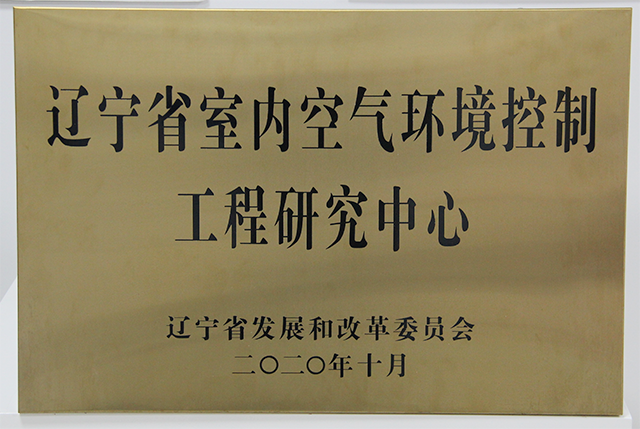 辽宁省室内空气环境控制
工程研究中心
辽宁省发展和改革委员会
二〇二〇年十月